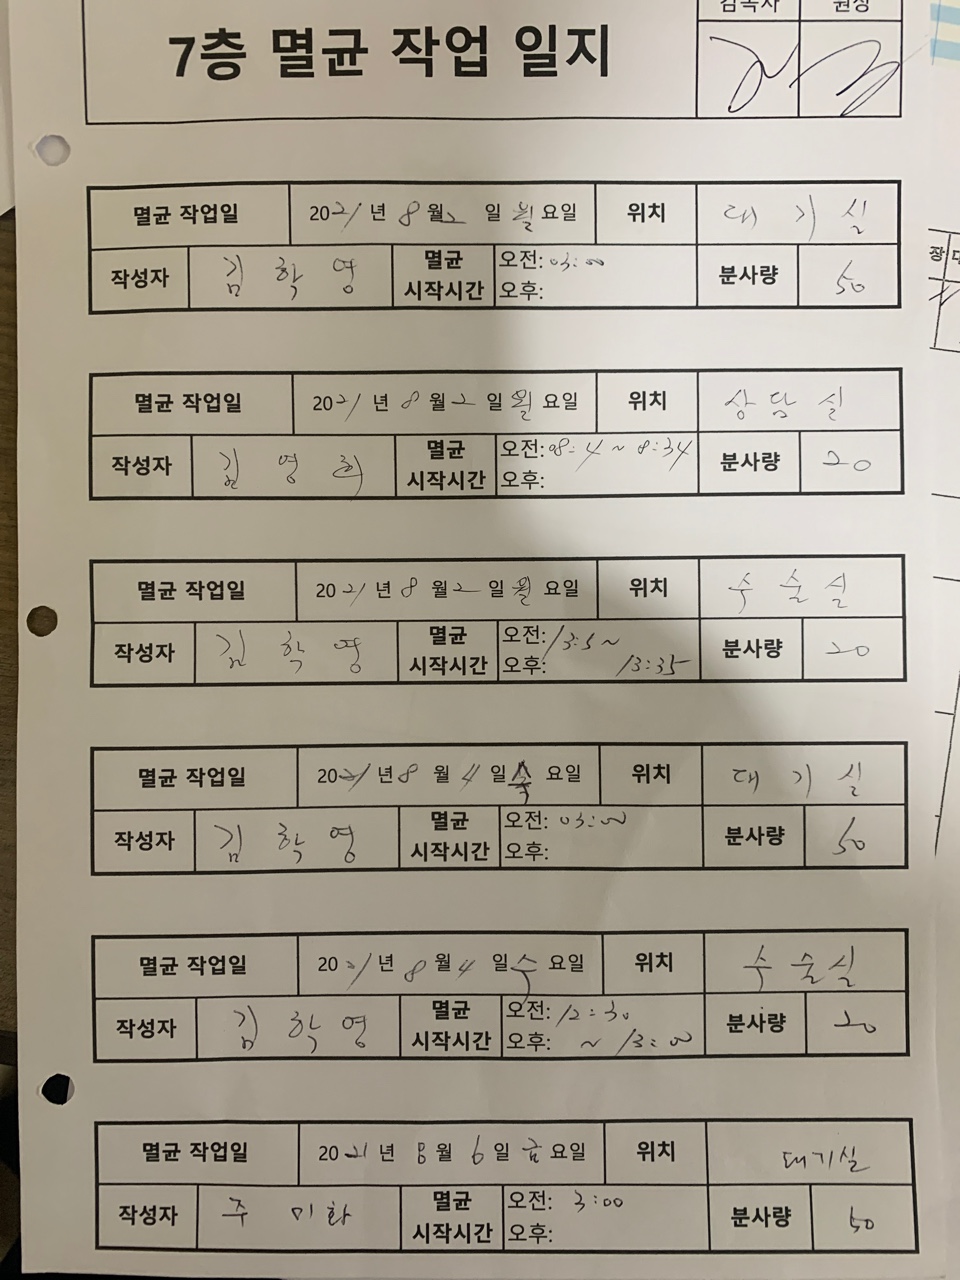 감독자 원장
7층 멸균 작업 일지
멸균 작업일 2021년 8월 2일 월요일 위치 대기실
작성자 김학영 멸균 시작시간 오전: 03:00 오후: 분사량 50
멸균 작업일 2021년 8월 2일 월요일 위치 상담실
작성자 김영희 멸균 시작시간 오전: 08:4~8:34 오후: 분사량 20
멸균 작업일 2021년 8월 2일 월요일 위치 수술실
작성자 김학영 멸균 시작시간 오전: 13:5~ 오후: 13:35 분사량 20
멸균 작업일 2021년 8월 4일 수요일 위치 대기실
작성자 김학영 멸균 시작시간 오전: 03:00 오후: 분사량 50
멸균 작업일 2021년 8월 4일 수요일 위치 수술실
작성자 김학영 멸균 시작시간 오전: 12:30 오후: ~13:00 분사량 20
멸균 작업일 2021년 8월 6일 금요일 위치 대기실
작성자 주미화 멸균 시작시간 오전: 3:00 오후: 분사량 50